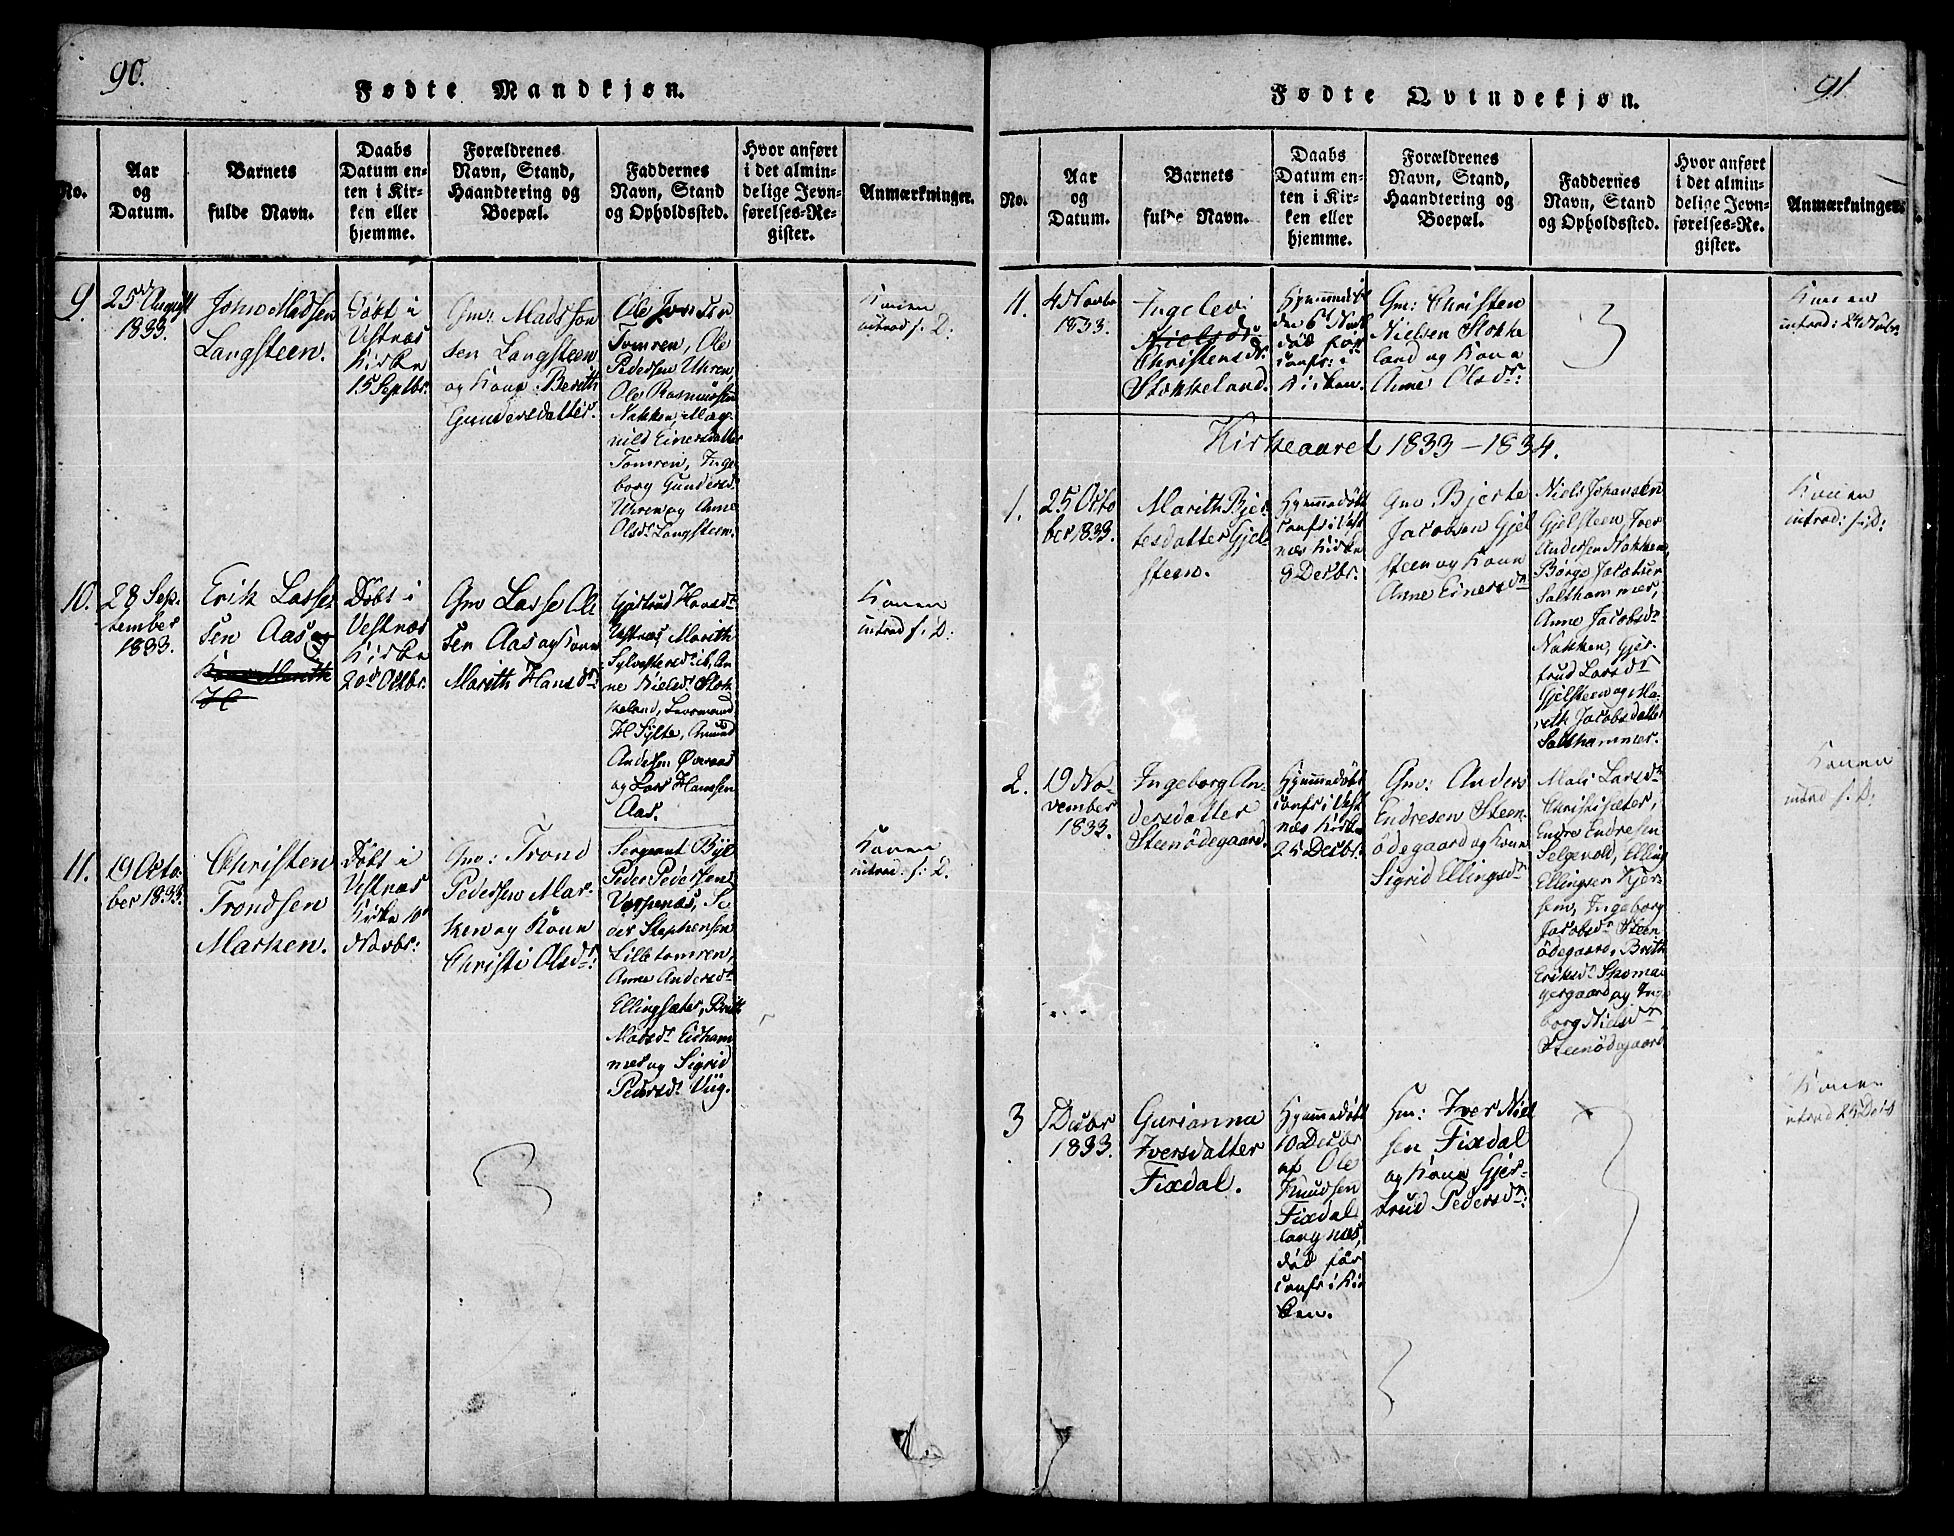 90.
Fødte Mandkjøn.
No.
Aar
og
Datum.
Barnets
fulde Navn.
Daabs
Datum en-
ten i Kir-
ken eller
hjemme.
Forældrenes
Navn, Stand,
Haandtering og
Boepæl.
Faddernes
Navn, Stand
og Opholdssted.
Hvor anført
i det almin-
delige Jevn-
førelses-Re-
gister.
Anmærkninger.
9.
25d August
1833.
John Madsen
Langsteen.
Døbt i
Vestnæs
Kirke
15 Septbr.
Gm: Mads Jon
sen Langsteen
og Kone Berith
Gundersdatter.
Ole Jonsen
Tomren, Ole
Pedersen Uhren
Ole Rasmussen
Nakken, Mag
nild Einersdatter
Tomren, Inge
borg Gundersd.
Uhren og Anne
Olsd. Langsteen.
Konen
introd: f: D.
10.
28 Sep-
tember
1833.
Erik Lasse
sen Aas
Døbt i
Vestnæs
Kirke
20d Octbr.
Gm Lasse Ol
sen Aas og Kone
Marith Hansdr.
Gjertrud Hansdr.
Vestnæs, Marith
Sylvestersdr. ib, An
ne Nielsdr. Stok
keland,
H Sylte, Amund
Andersen Øveraas
og Lars Hanssen
Aas.
Konen
introd f: D:
11.
19 Octo-
ber 1833.
Christen
Trondsen
Marken.
Døbt i
Vestnæs
Kirke 10d
Novbr:
Gm: Trond
Pedersen Mar-
ken og Kone
Christi Olsdr:
Sergeant Bye
Peder Pedersen
Vestnæs, Pe
der Stephensen
Lilletomren,
Anne Andersdr.
Ellingsæter, Brith
Madsdr. Eidham
mer og Sigrid
Pedersdr. Viig.
Konen
introd: f: D.
91
Fødte Qvindekjøn.
No.
Aar
og
Datum.
Barnets
fulde Navn.
Daabs
Datum en-
ten i Kir-
ken eller
hjemme.
Forældrenes
Navn, Stand,
Haandtering og
Boepæl.
Faddernes
Navn, Stand
og Opholdssted.
Hvor anført
i det almin-
delige Jevn-
førelses-Re-
gister.
Anmærkninger.
11.
4 Novbr
1833.
Ingelev
Nielsdr
Christensdr.
Stokkeland.
Hjemmedøbt
den 6
død før
confr: i
Kirken.
Gm: Christen
Nielsen Stokke
land og Kone
Anne Olsdr:
Konen
introd: 24 Novbr.
Kirkeaaret 1833-1834.
1.
25 Octo
ber 1833.
Marith Bjer
tesdatter Gjel
steen.
Hjemmedøbt
confr i Vest
næs Kirke
8 Decbr.
Gm Bjerte
Jacobsen Gjel
steen og Kone
Anne Einersdr
Niels Johansen
Gjelsteen, Iver
Andersen Nakken,
Børge Jacobsen
Salthammer,
Anne Jacobsdr
Nakken, Gjer
trud Larsdr
Gjelsteen og Ma
rith Jacobsdatter
Salthammer.
Konen
introd: f: D:
2.
19 No-
vember
1833.
Ingeborg An-
dersdatter
Steenødegaard.
Hjemmedøbt
confr i Vest
næs Kirke
25 Decbr.
Gm: Anders
Endresen Steen
ødegaard og Kone
Sigrid Ellingsdr
Mali Larsdr
Christisæter,
Endre Endresen
Selgevold, Elling
Ellingsen Kjer-
sem, Ingeborg
Jacobsdr Steen
ødegaard, Brith
Eriksdr. Skoma
gergaard og Inge
borg Nielsdr
Steenødegaard
Konen
introd f: D:
3
1 Decbr
1833.
Gurianna
Iversdatter
Fixdal.
Hjemmedøbt
10 Decbr
af Ole
Knudsen
Fixdal
langnæs,
død før
confr i Kir
ken.
Gm: Iver Niel
sen Fixdal
og Kone Gjer-
trud Pedersdr:
Konen
introd 25 Decbr